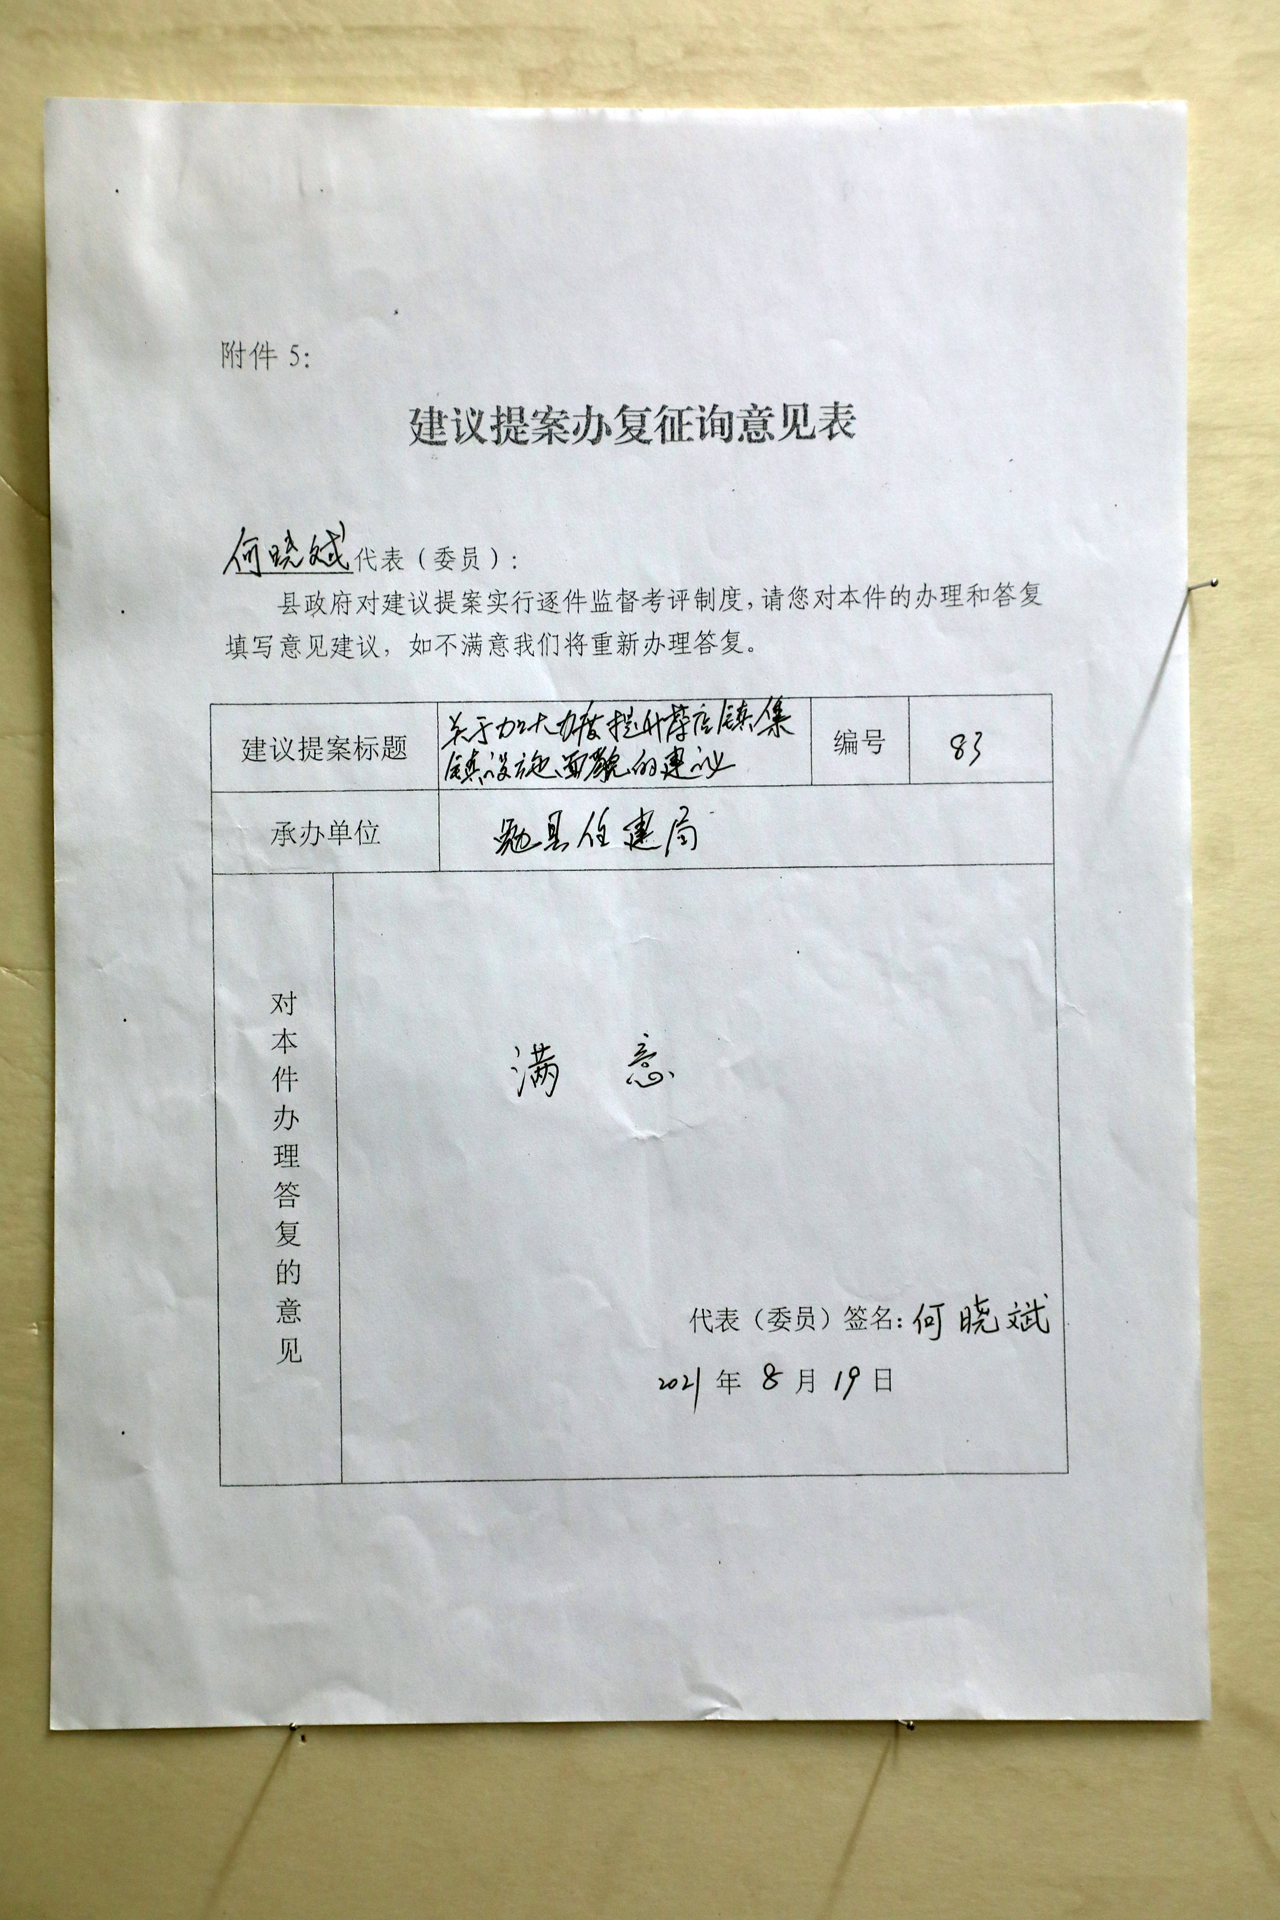 附件 5：
建议提案办复征询意见表
何晓斌代表（委员）：
县政府对建议提案实行逐件监督考评制度，请您对本件的办理和答复
填写意见建议，如不满意我们将重新办理答复。
建议提案标题
关于加大力度提升茶店镇集
镇设施、面貌的建议
编号
83
承办单位
勉县住建局
对本件办理答复的意见
满 意
代表（委员）签名：何晓斌
2021年 8 月 19 日